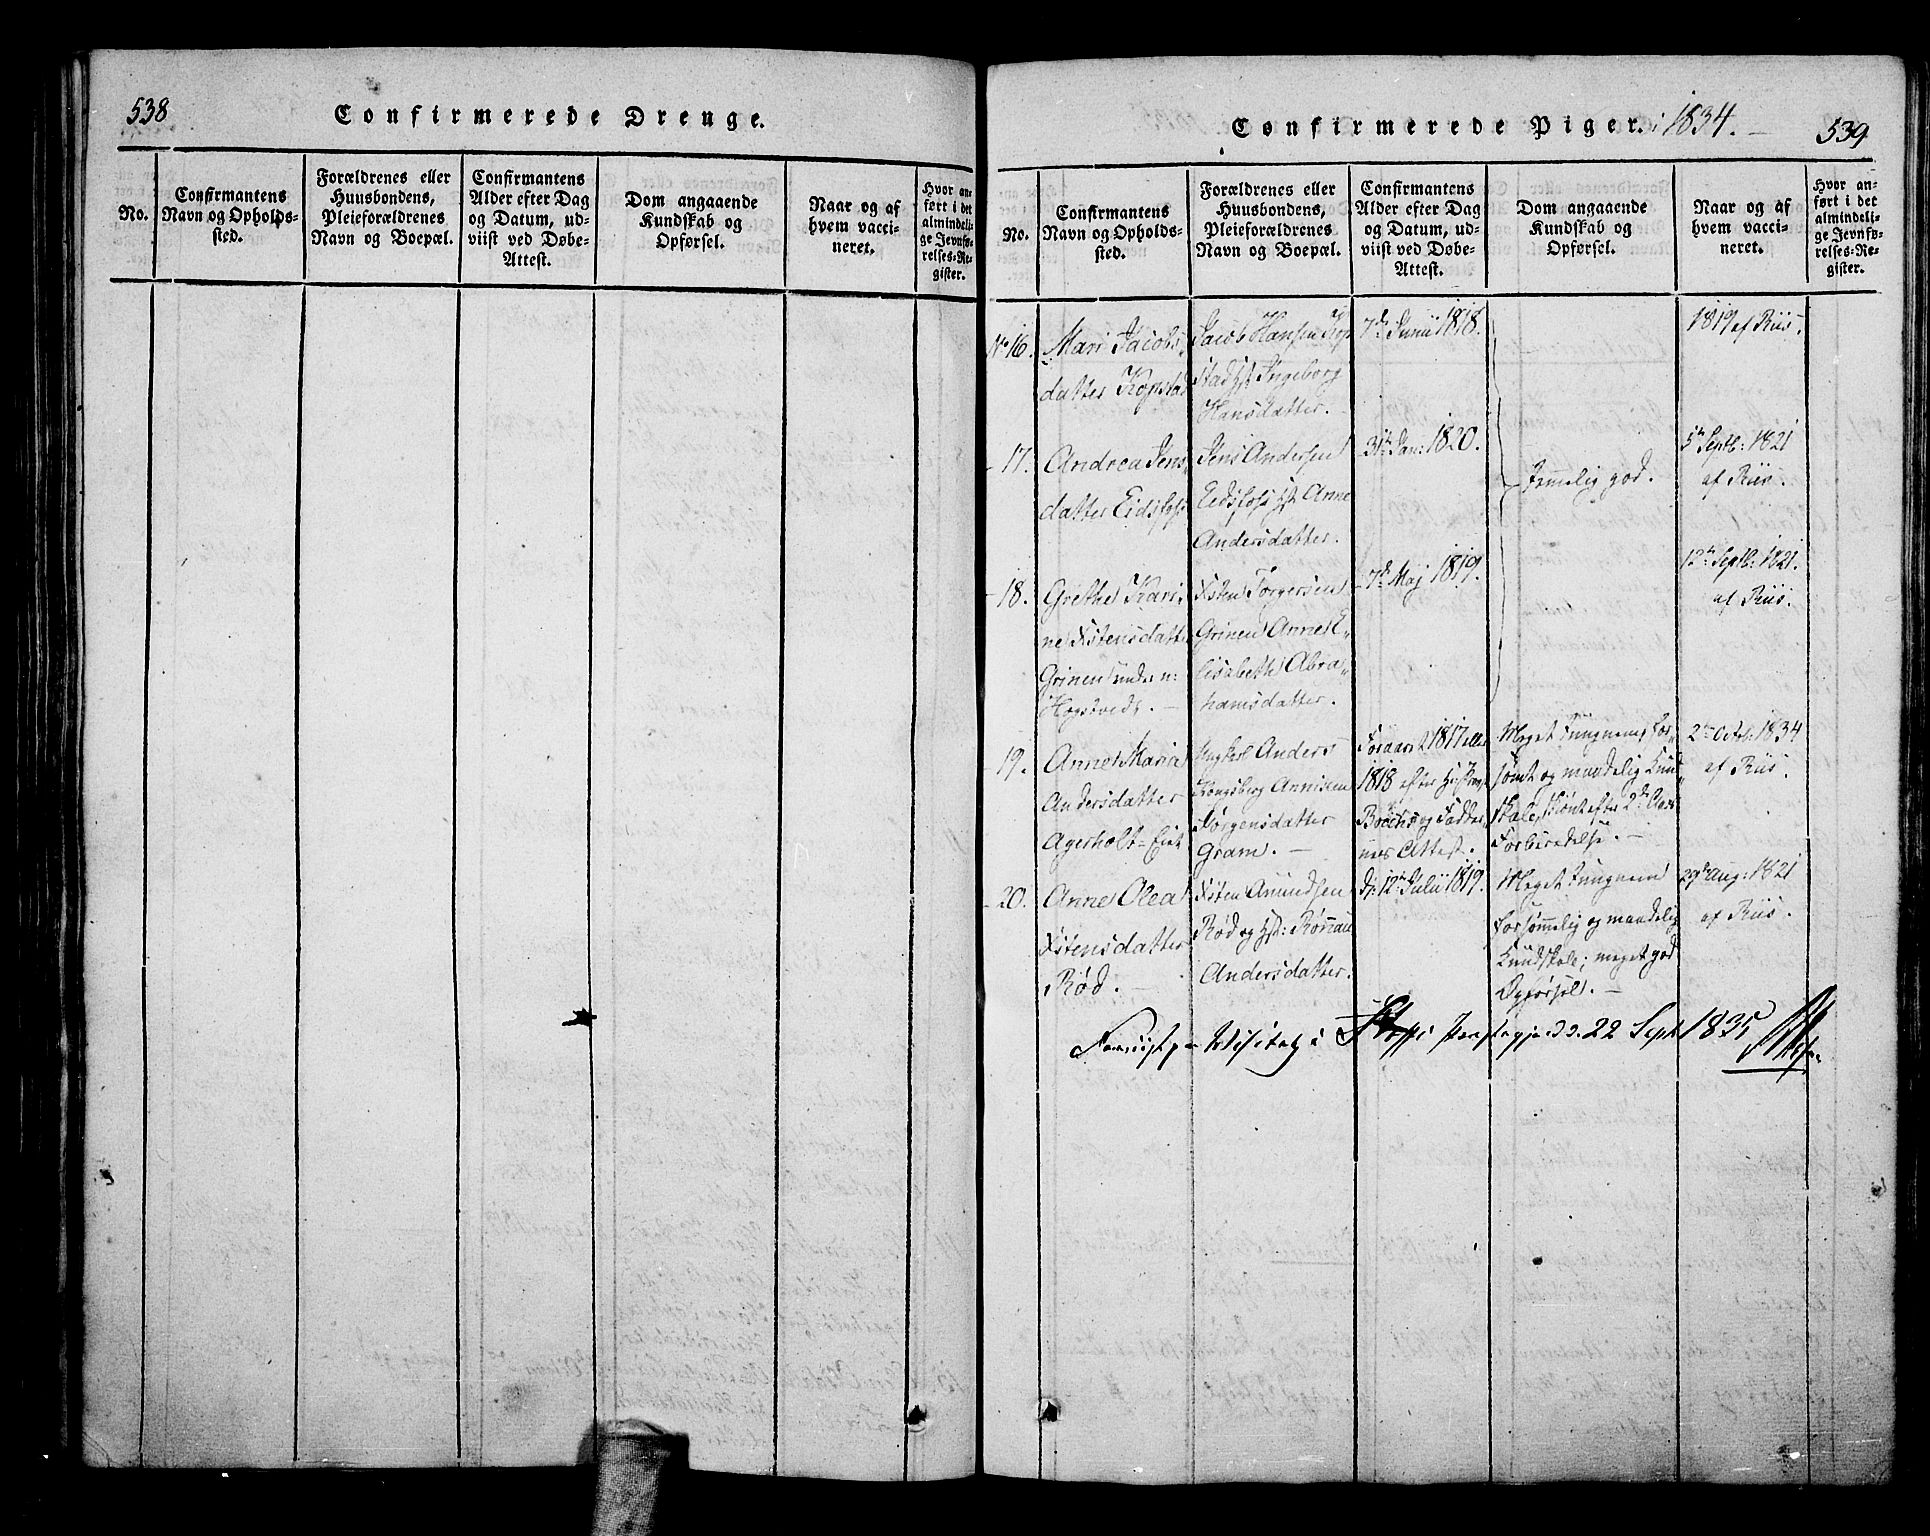 538
Confirmerede Drenge.
No.
Confirmantens
Navn og Opholds-
sted.
Forældrenes eller
Huusbondens,
Pleieforældrenes
Navn og Boepæl.
Confirmantens
Alder efter Dag
og Datum, ud-
viist ved Døbe-
Attest.
Dom angaaende
Kundskab og
Opførsel.
Naar og af
hvem vacci-
neret.
Hvor an-
ført i det
almindeli-
ge Jevnfø-
relses-Re-
gister.
Confirmerede Piger. i 1834.
539
No.
Confirmantens
Navn og Opholds-
sted.
Forældrenes eller
Huusbondens,
Pleieforældrenes
Navn og Boepæl.
Confirmantens
Alder efter Dag
og Datum, ud-
viist ved Døbe-
Attest.
Dom angaaende
Kundskab og
Opførsel.
Naar og af
hvem vacci-
neret.
Hvor an-
ført i det
almindeli-
ge Jevnfø-
relses-Re-
gister.
No 16.
Mari Jacobs-
datter Kopstad
Jacob Hansen Kop
stad Hst Ingeborg
Hansdatter.
7de Junii 1818.
1819 af Riis.
17.
Andrea Jens
datter Eidsfos
Jens Andersen
Eidsfos Hst Anne
Andersdatter.
31te Jan: 1820.
Temmelig god.
5te Septb: 1821
af Riis.
18.
Grethe Kari-
ne Istensdatt
Grinen under n:
Hogstvedt.
Isten Torgersen
Grinen Anne E-
lisabeth Abra-
hamsdatter.
7de Maj 1819.
12te Septb: 1821.
af Riis.
19.
Anne Maria
Andersdatter
Agerholt-Eiet
Ungkarl Anders
Kongsberg Annisken
Jørgensdatter
Gram.
Foraaret 1817 eller
1818 efter
og Fadder
nes Attest.
Meget Tungnem, For-
sømt og maadelig Kund
skab, skiønt efter 2de Aars
Forberedelse.
2den Octob: 1834
af Riis.
20.
Anne Olea
Istensdatter
Rød.
Isten Amundsen
Rød og Hst: Rønnau
Andersdatter.
D: 12te Julii 1819.
Meget Tungnem
Forsømmelig og maadelig
Kundskab; meget god
Opførsel.
29de Aug: 1821
af Riis.
Foreviist paa Visitatz i Præstegje d. 22 Sept 1835